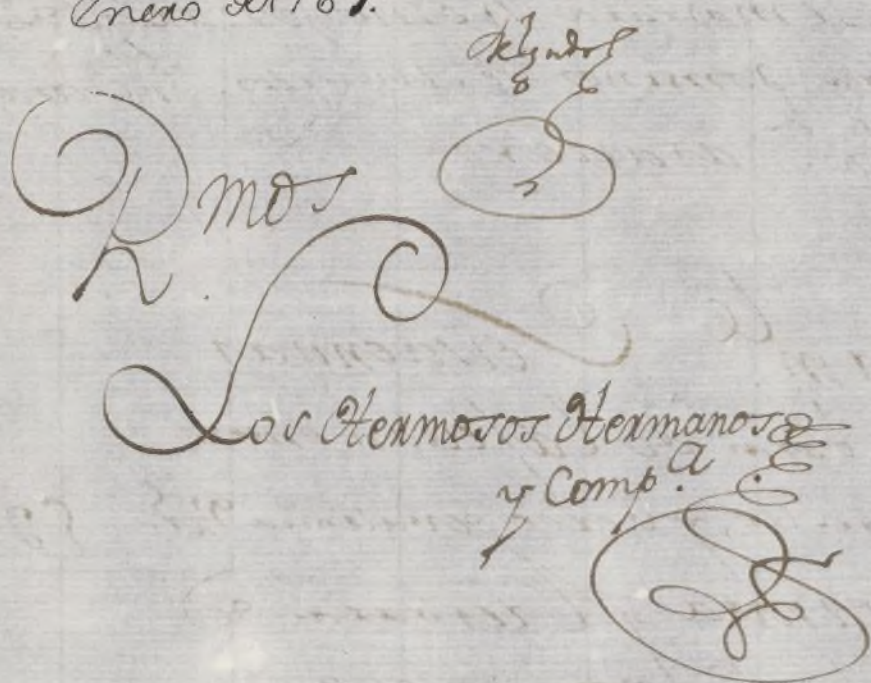 Enero de 178
Delgado
Rmos
Los Hermosos Hermanos
y Comp.a